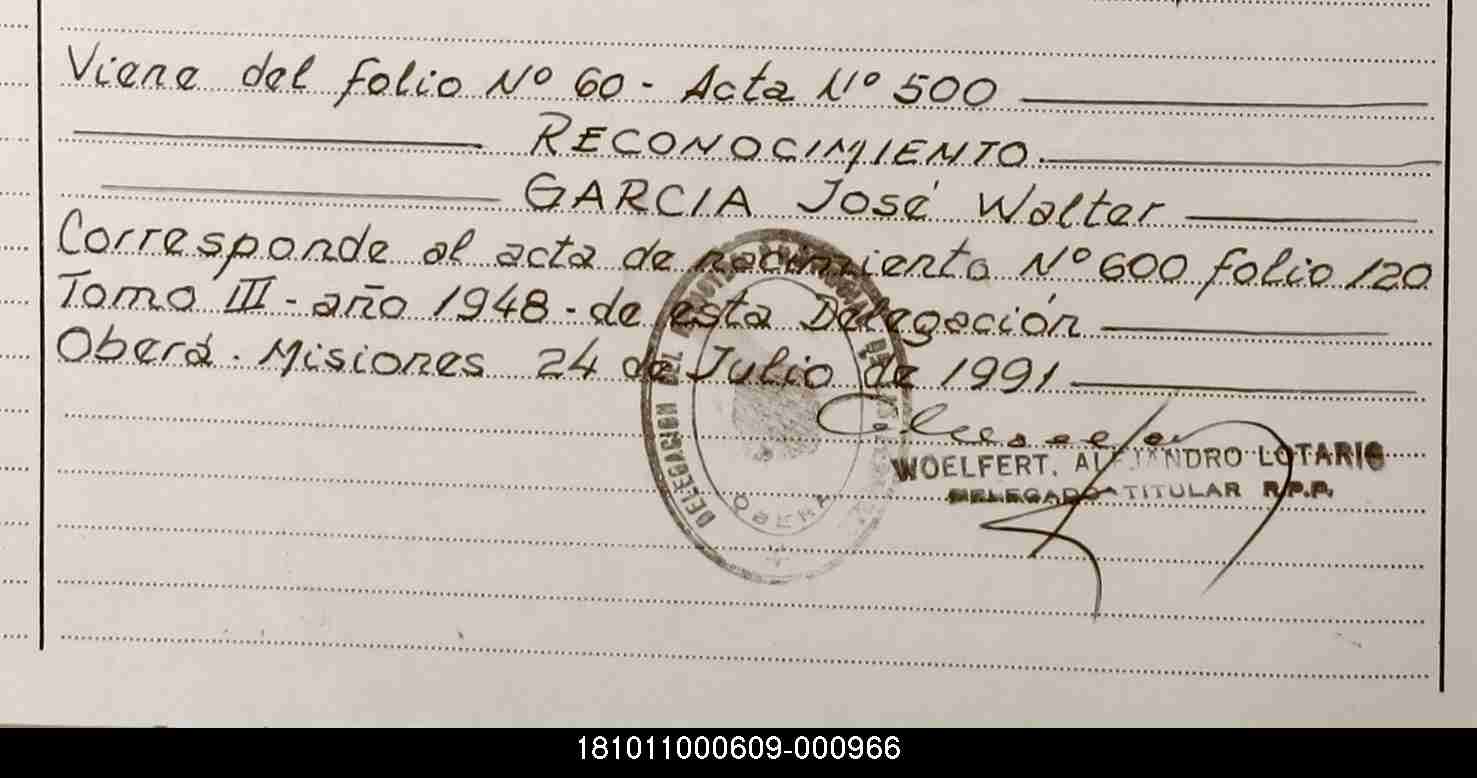 Viene del folio Nº 60 - Acta Nº 500
RECONOCIMIENTO.
GARCIA José Walter
Corresponde al acta de nacimiento Nº 600 folio 120
Tomo III - año 1948 - de esta Delegación
Oberá. Misiones 24 de Julio de 1991
WOELFERT, ALEJANDRO LOTARIO
DELEGADO TITULAR R.P.P.
DELEGACION DEL
OBERA
181011000609-000966